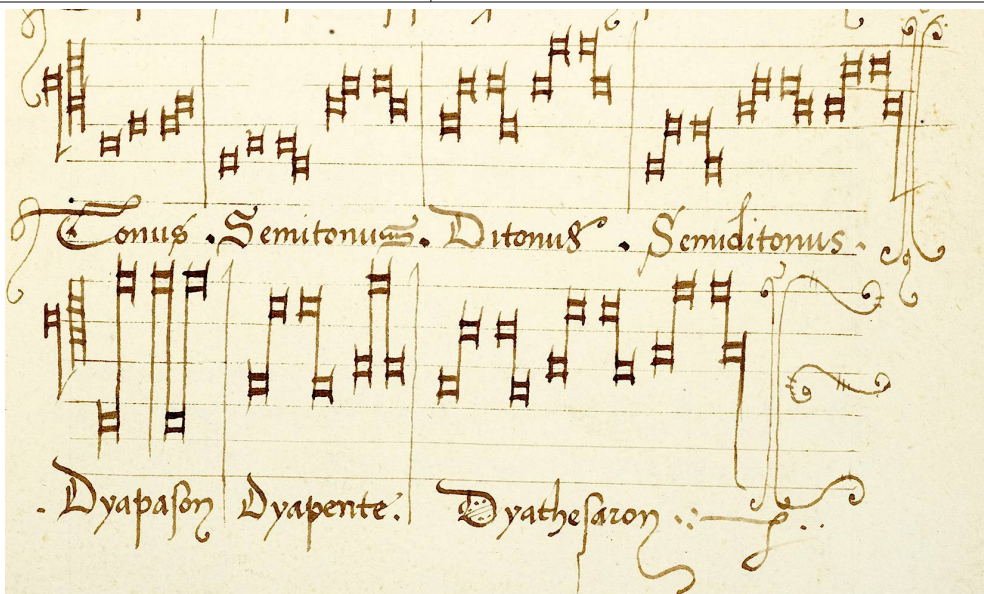 Tonus . Semitonum . Ditonus . Semiditonus .
. Dyapason Dyapente . Dyathesaron